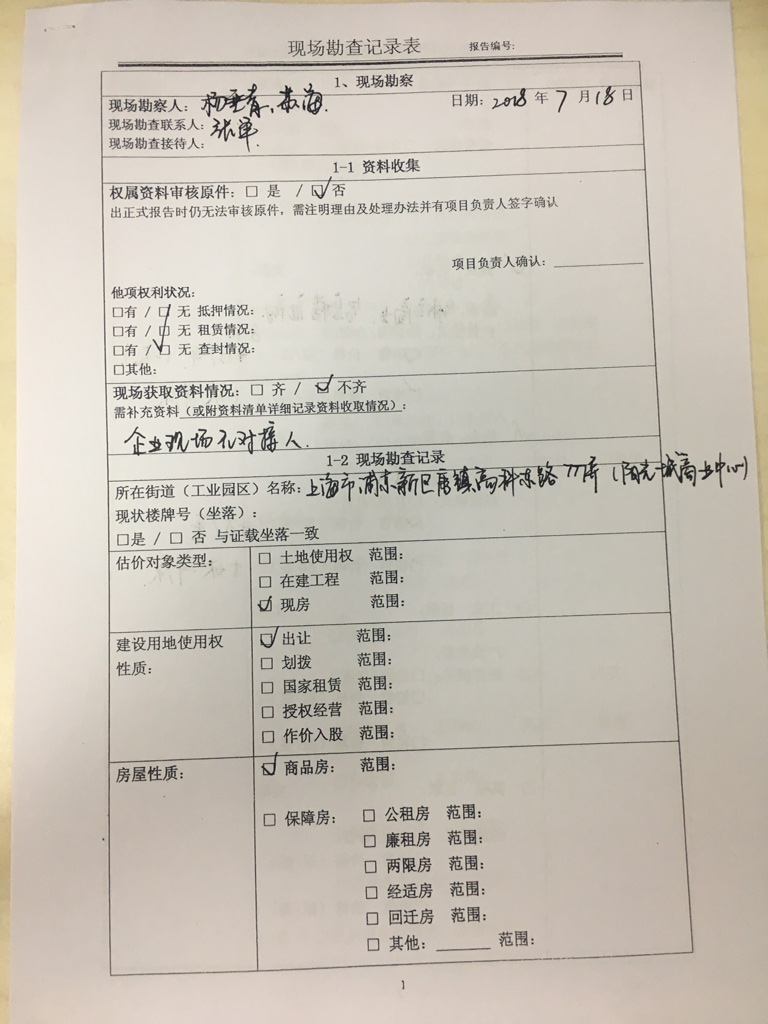 现场勘查记录表 报告编号:
1、现场勘察
现场勘察人: 海 日期: 2018 年 7 月 18 日
现场勘查联系人: 张军
现场勘查接待人:
1-1 资料收集
权属资料审核原件: □ 是 / ☑ 否
出正式报告时仍无法审核原件，需注明理由及处理办法并有项目负责人签字确认
项目负责人确认:
他项权利状况:
□有 / ☑ 无 抵押情况:
□有 / ☑ 无 租赁情况:
□有 / ☑ 无 查封情况:
□其他:
现场获取资料情况: □ 齐 / ☑ 不齐
需补充资料（或附资料清单详细记录资料收取情况）:
企业现场不对接人.
1-2 现场勘查记录
所在街道（工业园区）名称: 上海市浦东新区唐镇高科东路777弄（阳光城商业中心）
现状楼牌号（坐落）:
□是 / □ 否 与证载坐落一致
估价对象类型: □ 土地使用权 范围:
□ 在建工程 范围:
☑ 现房 范围:
建设用地使用权 ☑ 出让 范围:
性质: □ 划拨 范围:
□ 国家租赁 范围:
□ 授权经营 范围:
□ 作价入股 范围:
房屋性质: ☑ 商品房: 范围:
□ 保障房: □ 公租房 范围:
□ 廉租房 范围:
□ 两限房 范围:
□ 经适房 范围:
□ 回迁房 范围:
□ 其他: 范围:
1